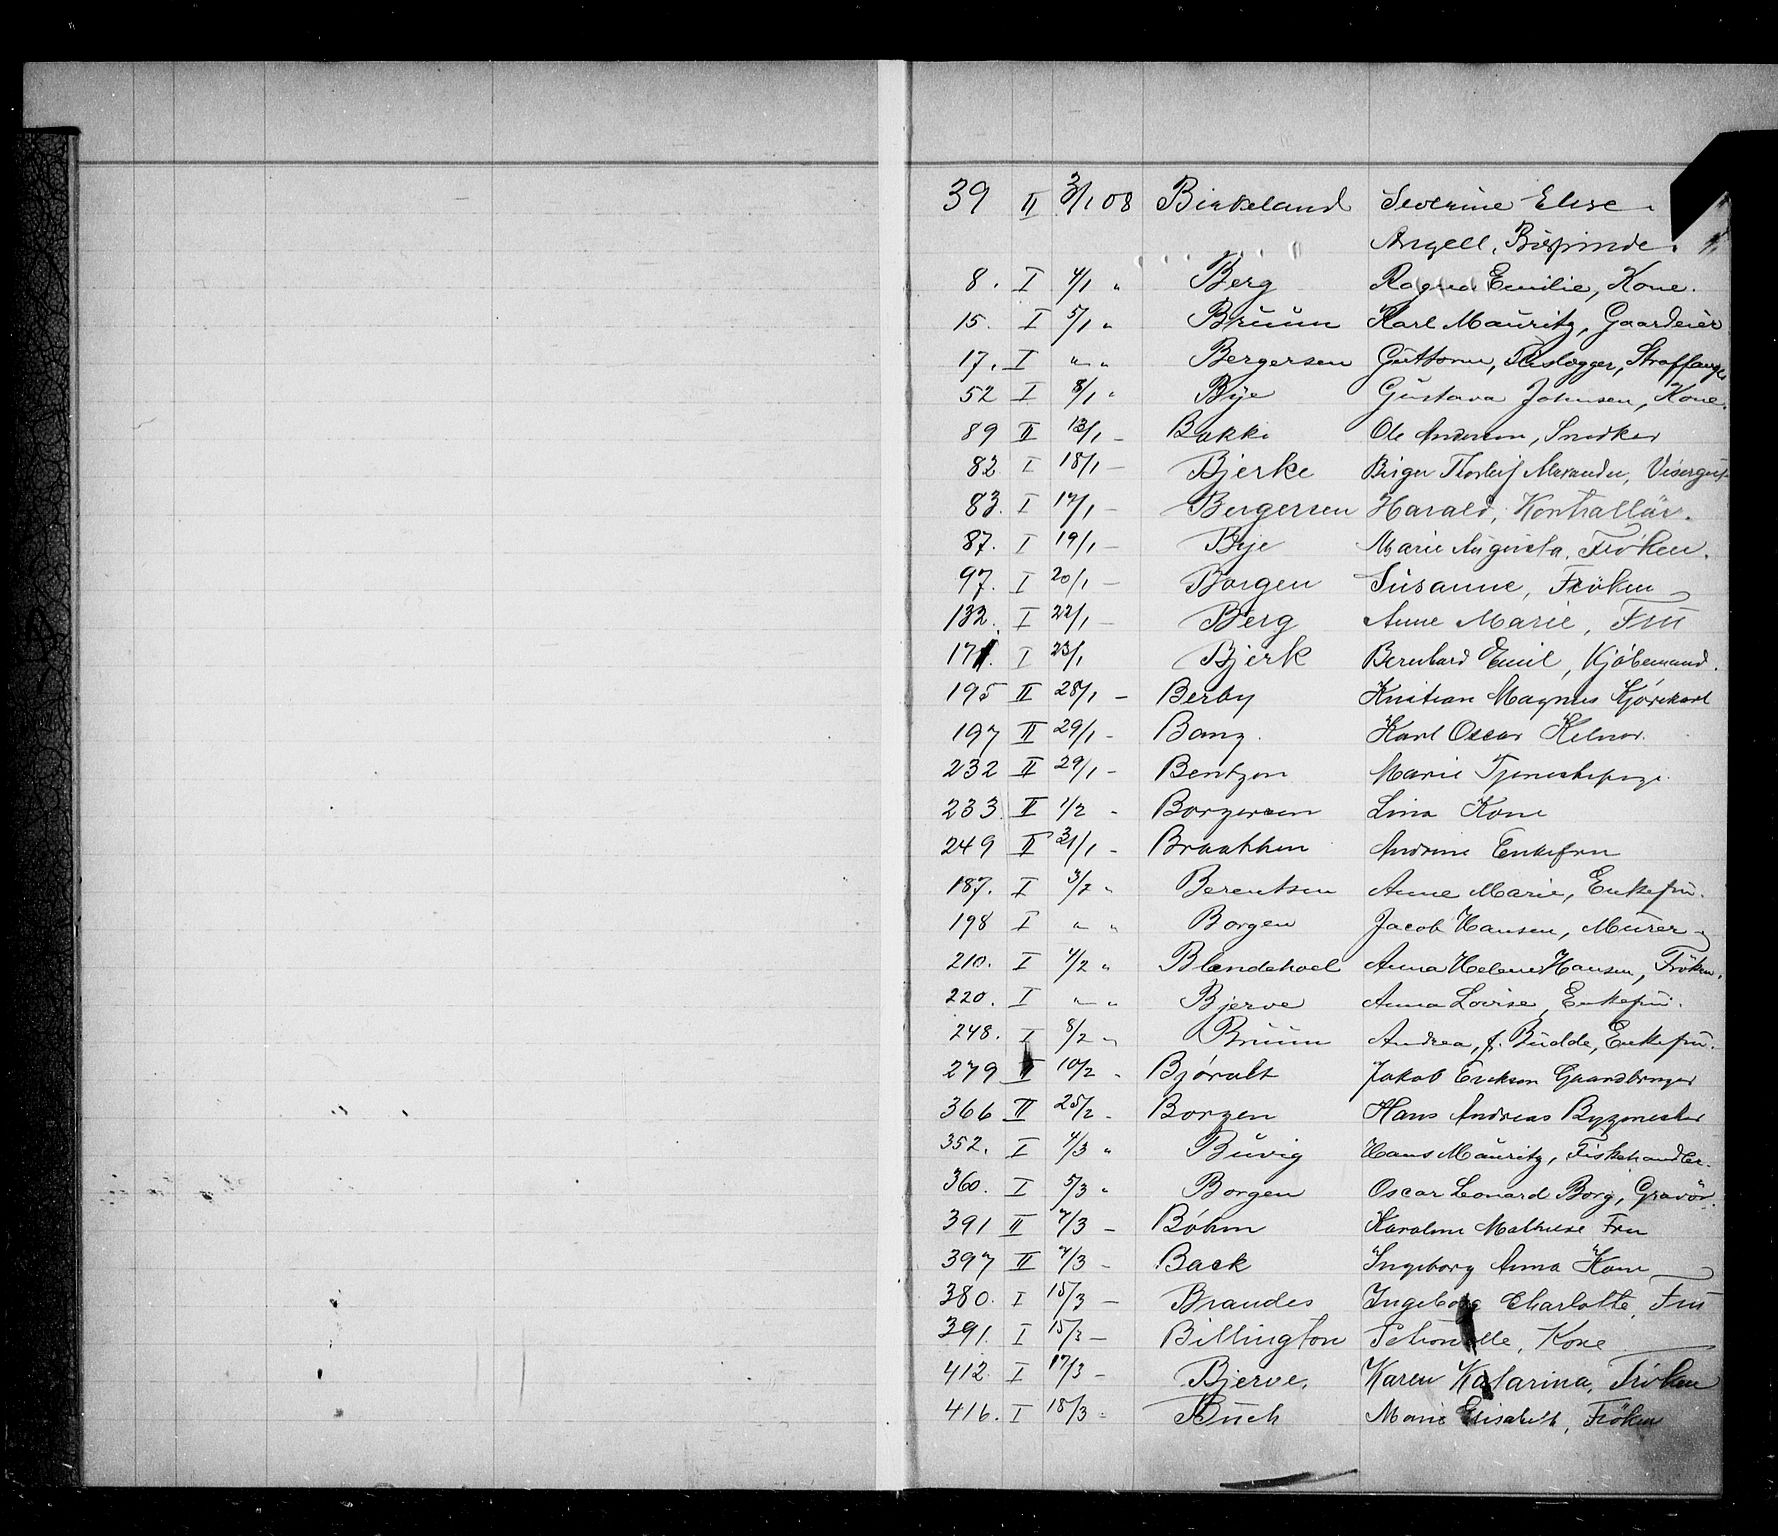 39 II 3/1 08 Birkeland Severine Elise
Angell, Bispinde.
8. I 4/1 " Berg Ragna Emilie, Kone.
15. I 5/1 " Bruun Karl Mauritz, Gaardeier
17. I " " Bergersen Guttorm, Straffange
52 I 8/1 " Bye Gustava Johnsen, Kone.
89 II 13/1 - Bakke Ole Andersen, Snedker
82 I 18/1 - Bjerke Birger Thorleif Alexander, Visergut
83. I 17/1 - Bergersen Harald, Kontrallör.
87. I 19/1 - Bye Marie Augusta, Fröken.
97. I 20/1 - Borgen Susanne, Fröken
132. I 22/1 - Berg Anne Marie, Fru
171. I 23/1 Bjerk Bernhard Emil, Kjøbmand.
195 II 28/1 - Berby Kristian Magnus Kjørekarl
197 II 29/1 - Bang. Karl Oscar Kelner.
232 II 29/1 - Bentzon Marie Tjenestepige.
233 II 1/2 - Borgersen Lina Kone
249 II 31/1 - Braathen Andrine Enkefru
187. I 3/2 " Berentsen Anne Marie, Enkefru.
198 I " " Borgen Jacob Hansen, Murer
210. I 4/2 " Blendehoel Anna Helene Hansen, Fröken.
220. I " " Bjerve Anna Lovise, Enkefru.
248. I 8/2 " Bruun Andrea, f. Budde, Enkefru.
279 II 10/2 - Bjøralt Jakob Erikson Gaardbruger
366 II 25/2 - Borgen Hans Andreas Bygmester
352. I 4/3 " Buvig Hans Mauritz, Fiskehandler.
360. I 5/3 " Borgen Oscar Leonard Borg, Gravör.
391 II 7/3 - Bøhm Karoline Mathilde Fru
397 II 7/3 - Back Ingeborg Anna Kone
380. I 15/3 - Brandes Ingeborg Charlotte, Fru
391. I 15/3 - Billington Kone
412. I 17/3 - Bjerve. Karen Katarina, Fröken
416. I 18/3 - Buch Marie Elisabeth, Fröken